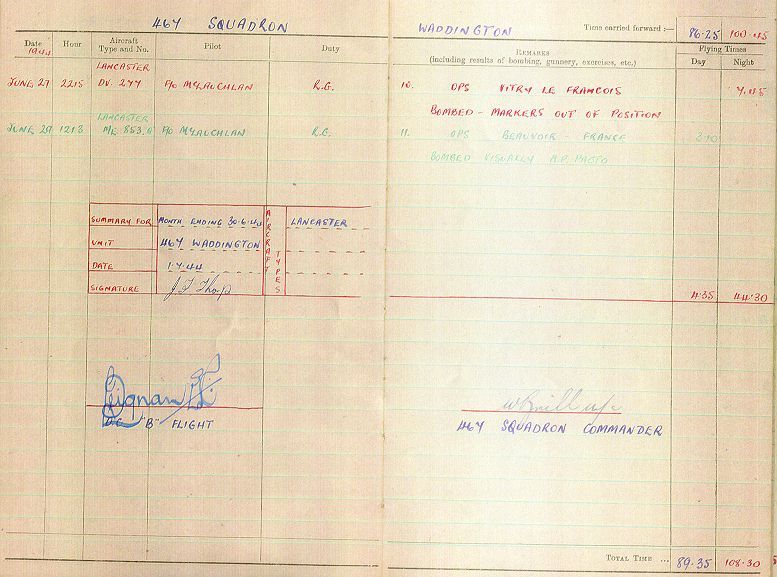 467 SQUADRON
WADDINGTON Time carried forward :— 86.25 100.45
Date Hour Aircraft Type and No. Pilot Duty REMARKS (including results of bombing, gunnery, exercises, etc.) Flying Times
1944 Day Night
LANCASTER
JUNE 27 2215 DV. 277 F/O McLAUCHLAN R.G. 10. OPS VITRY LE FRANCOIS 7.45
BOMBED - MARKERS OUT OF POSITION
LANCASTER
JUNE 29 1213 M/E 853. F/O McLAUCHLAN R.G. 11. OPS BEAUVOIR - FRANCE 3.10
BOMBED VISUALLY A.P.
SUMMARY FOR MONTH ENDING 30.6.44 AIRCRAFT TYPES LANCASTER
UNIT 467 WADDINGTON
DATE 1.7.44
SIGNATURE J T Thorp
4.35 44.30
O.C. "B" FLIGHT
467 SQUADRON COMMANDER
TOTAL TIME ... 89.35 108.30